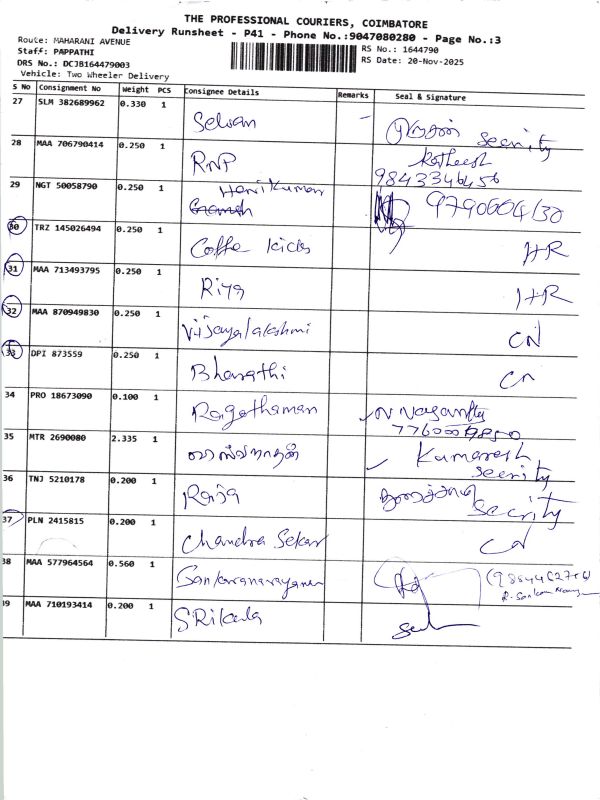 THE PROFESSIONAL COURIERS, COIMBATORE
Delivery Runsheet - P41 - Phone No.:9047080280 - Page No.:3
Route: MAHARANI AVENUE
RS No.: 1644790
Staff: PAPPATHI
RS Date: 20-Nov-2025
DRS No.: DCJB164479003
Vehicle: Two Wheeler Delivery
S No Consignment No Weight PCS Consignee Details Remarks Seal & Signature
27 SLM 382689962 0.330 1 Selvan - security
28 MAA 706790414 0.250 1 RNP
9843346456
29 NGT 50058790 0.250 1 Harikumar
Ganesh 9790604130
30 TRZ 145026494 0.250 1 Coffe kicks HR
31 MAA 713493795 0.250 1 Riya HR
32 MAA 870949830 0.250 1 Vijayalakshmi CN
33 DPI 873559 0.250 1 Bharathi CN
34 PRO 18673090 0.100 1 Ragothaman
35 MTR 2690080 2.335 1 Kumaresh
security
36 TNJ 5210178 0.200 1 Raja security
37 PLN 2415815 0.200 1 Chandra Sekar CN
38 MAA 577964564 0.560 1 Sankaranarayanan
39 MAA 710193414 0.200 1 SRikala